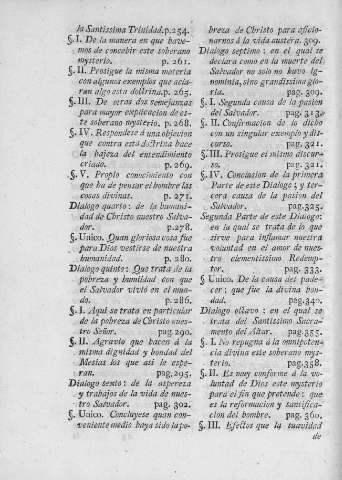 la Santissima Trinidad. p.254.
§. I. De la manera en que havemos
de concebir este soberano
mysterio. p. 261.
§. II. Prosigue la misma materia
con algunos exemplos que aclaran
algo esta doctrina. p.265.
§. III. De otras dos semejanzas
para mayor explicacion de este
soberano mysterio. p. 268.
§. IV. Respondese á una objecion
que contra esta doctrina hace
la bajeza del entendimiento
criado. p.269.
§. V. Propio conocimiento con
que ha de pensar el hombre las
cosas divinas. p. 271.
Dialogo quarto: de la humanidad
de Christo nuestro Salvador.
p.278.
§. Unico. Quan gloriosa cosa fue
para Dios vestirse de nuestra
humanidad. p. 280.
Dialogo quinto: Que trata de la
pobreza y humildad con que
el Salvador vivió en el mundo.
p. 286.
§. I. Aqui se trata en particular
de la pobreza de Christo nuestro
Señor. pag. 290.
§. II. Agravio que hacen á la
misma dignidad y bondad del
Mesias los que asi le esperan.
pag. 295.
Dialogo sexto: de la aspereza
y trabajos de la vida de nuestro
Salvador. pag. 302.
§. Unico. Concluyese quan conveniente
medio haya sido la pobreza
de Christo para aficionarnos
á la vida austéra. 309.
Dialogo septimo: en el qual se
declara como en la muerte del
Salvador no solo no huvo ignominia,
sino grandissima gloria.
pag. 309.
§. I. Segunda causa de la pasion
del Salvador. pag. 313.
§. II. Confirmacion de lo dicho
con un singular exemplo y discurso.
pag. 321.
§. III. Prosigue el mismo discurso.
pag. 321.
§. IV. Conclusion de la primera
Parte de este Dialogo; y tercera
causa de la pasion del
Salvador. pag.325.
Segunda Parte de este Dialogo:
en la qual se trata de lo que
sirve para inflamar nuestra
voluntad en el amor de nuestro
clementissimo Redemptor.
pag. 333.
§. Unico. De la causa del padecer;
que fue la divina bondad.
pag.340.
Dialogo octavo: en el qual se
trata del Santissimo Sacramento
del Altar. pag.355.
§. I. No repugna á la omnipotencia
divina este soberano mysterio.
pag.358.
§. II. Es muy conforme á la voluntad
de Dios este mysterio
para el fin que pretende: que
es la reformacion y santificacion
del hombre. pag. 360.
§. III. Efectos que la suavidad
de